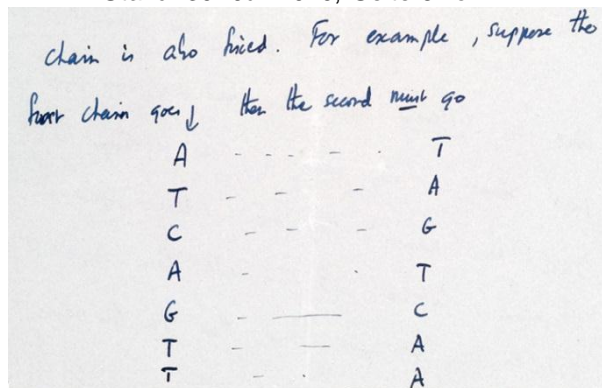 chain is also fixed. For example, suppose the
first chain goes ↓ then the second must go
A - - - - - T
T - - - A
C - - - G
A - - T
G - — C
T - — A
T - - A